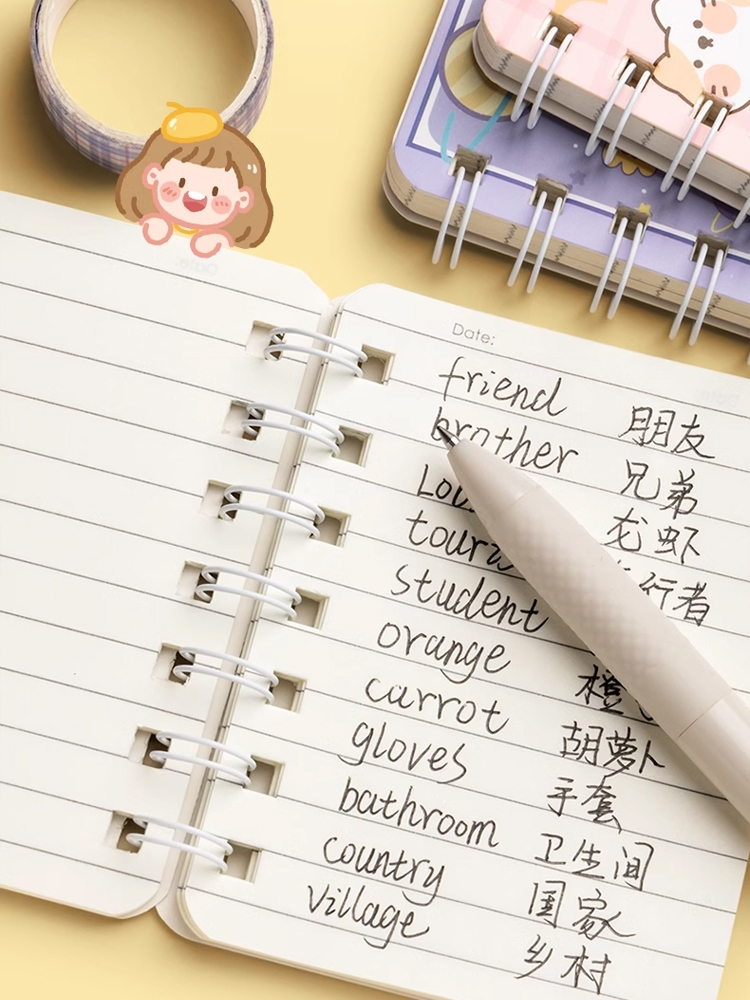 Date:
friend 朋友
brother 兄弟
龙虾
行者
student
orange 橙
carrot 胡萝卜
gloves 手套
bathroom 卫生间
country 国家
Village 乡村